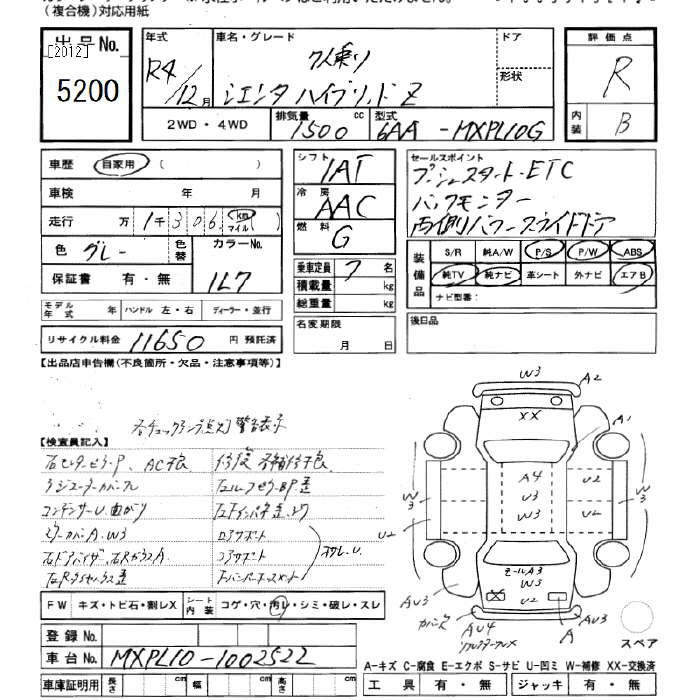 (複合機)対応用紙
出品No.
[2012]
5200
年式
R4/12月
車名・グレード
7人乗り
シエンタ ハイブリッド Z
ドア
形状
2WD・4WD
排気量 cc
1500
型式
6AA - MXPL10G
評価点
R
内装
B
車歴 自家用 ( )
車検 年 月
走行 万 1千306 km マイル ( )
色 グレー 色替 カラーNo.
保証書 有・無 1L7
モデル年式 年 ハンドル 左・右 ディーラー・並行
リサイクル料金 11650 円 預託済
シフト
IAT
冷房
AAC
燃料
G
乗車定員 7 名
積載量 kg
総重量 kg
名変期限
月 日
セールスポイント
プッシュスタート・ETC
バックモニター
両側パワースライドドア
装備品
S/R 純A/W P/S P/W ABS
純TV 純ナビ 革シート 外ナビ エアB
ナビ型番:
後日品
【出品店申告欄(不良箇所・欠品・注意事項等)】
【検査員記入】
各チェックランプ点灯 警告表示
右センターピラーP、AC不良
コンデンサーU、曲がり
ミラーカバーA、W3
ロアサポート
コアサポート
FW キズ・トビ石・割レX シート内装 コゲ・穴・汚レ・シミ・破レ・スレ
登録No.
車台No. MXPL10-1002522
車庫証明用 長さ cm 幅 cm 高さ cm
W3
A2
XX
A1
A4
U3
W3
U2
U2
W3
U2
W3
モールA3
W3
U2
AU3
AU4
A
AU3
スペア
A-キズ C-腐食 E-エクボ S-サビ U-凹ミ W-補修 XX-交換済
工具 有・無 ジャッキ 有・無